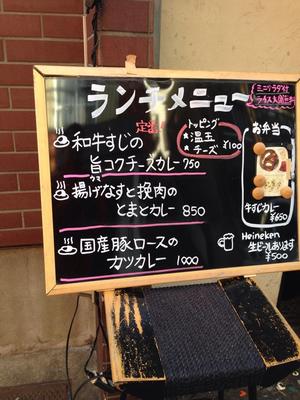 ランチメニュー
ミニサラダ付
定番!
和牛すじの
旨コクチーズカレー 750
ウマ
トッピング
★温玉
★チーズ
¥100
揚げなすと挽肉の
とまとカレー 850
国産豚ロースの
カツカレー 1000
お弁当
牛すじカレー
¥650
Heineken
生ビールあります
¥500